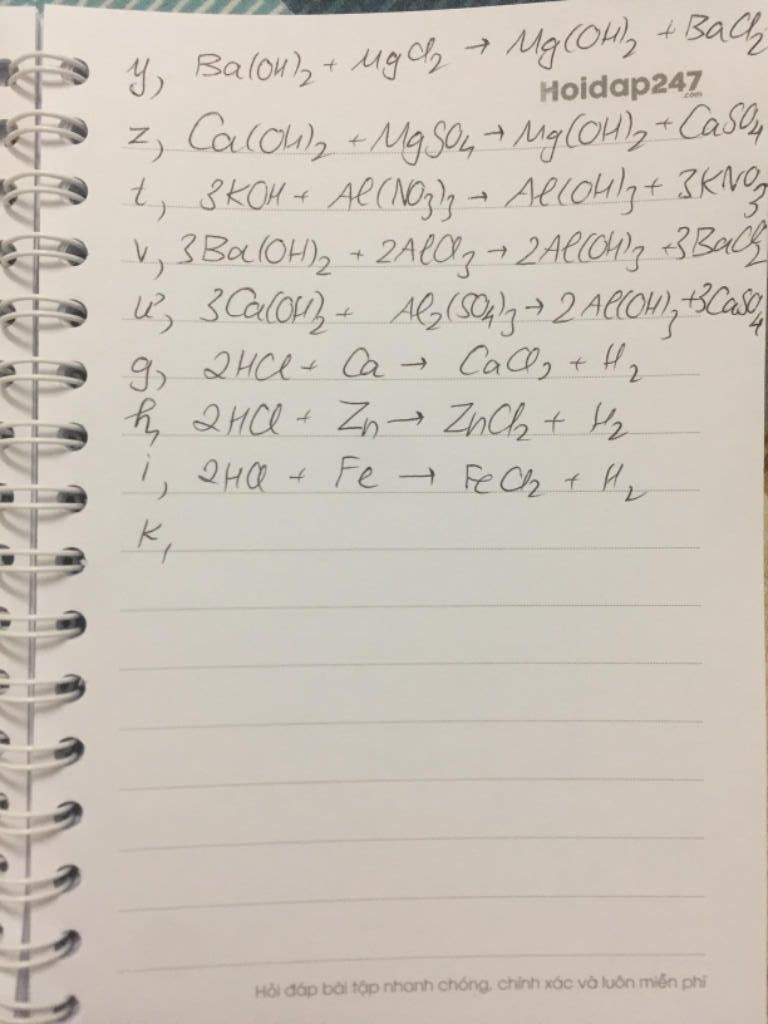 y, Ba(OH)₂ + MgCl₂ → Mg(OH)₂ + BaCl₂
Hoidap247
.com
z, Ca(OH)₂ + MgSO₄ → Mg(OH)₂ + CaSO₄
t, 3KOH + Al(NO₃)₃ → Al(OH)₃ + 3KNO₃
v, 3Ba(OH)₂ + 2AlCl₃ → 2Al(OH)₃ + 3BaCl₂
ư, 3Ca(OH)₂ + Al₂(SO₄)₃ → 2Al(OH)₃ + 3CaSO₄
g, 2HCl + Ca → CaCl₂ + H₂
h, 2HCl + Zn → ZnCl₂ + H₂
i, 2HCl + Fe → FeCl₂ + H₂
k,
Hỏi đáp bài tập nhanh chóng, chính xác và luôn miễn phí